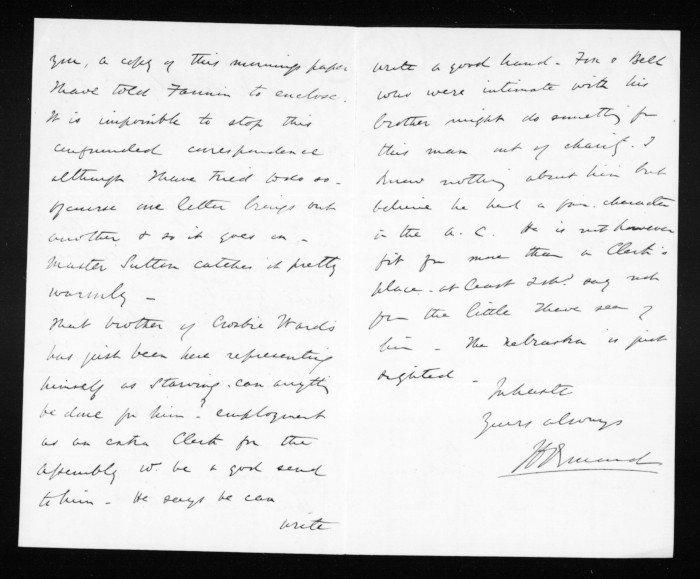 you, a copy of this mornings paper
I have told Fannin to enclose.
It is impossible to stop this
confounded correspondence
although I have tried to do so -
of course one letter brings out
another, & so it goes on -
Master Sutton catches it pretty
warmly -
That brother of Crosbie Ward's
has just been here representing
himself as starving. can anything
be done for him? employment
as an extra Clerk for the
Assembly wd. be a god send
to him - He says he can
write
write a good hand - Fox & Bell
who were intimate with his
brother might do something for
this man out of charity. I
know nothing about him but
believe he had a fair character
in the A. C. He is not however
fit for more than a Clerk's
place - at least I shd. say not
from the little I have seen of
him - The Nebraska is just
sighted -
In haste
Yours always